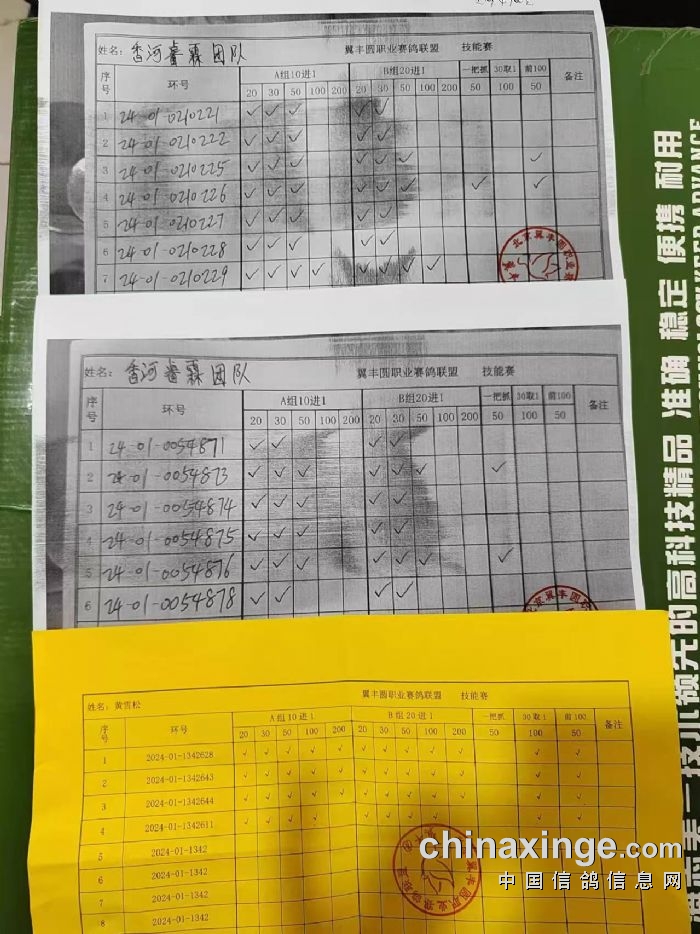 姓名：香河睿霖团队 翼丰圆职业赛鸽联盟 技能赛
序号 环号 A组10进1 B组20进1 一把抓 30取1 前100 备注
20 30 50 100 200 20 30 50 100 200 50 100 50
1 24-01-0210221 ✓ ✓ ✓ ✓ ✓
2 24-01-0210222 ✓ ✓ ✓ ✓ ✓
3 24-01-0210225 ✓ ✓ ✓ ✓ ✓ ✓ ✓
4 24-01-0210226 ✓ ✓ ✓ ✓ ✓ ✓ ✓ ✓
5 24-01-0210227 ✓ ✓ ✓ ✓ ✓
6 24-01-0210228 ✓ ✓ ✓ ✓ ✓
7 24-01-0210229 ✓ ✓ ✓ ✓ ✓ ✓ ✓ ✓
北京翼丰圆职业赛
姓名：香河睿霖团队 翼丰圆职业赛鸽联盟 技能赛
序号 环号 A组10进1 B组20进1 一把抓 30取1 前100 备注
20 30 50 100 200 20 30 50 100 200 50 100 50
1 24-01-0054871 ✓ ✓ ✓ ✓
2 24-01-0054873 ✓ ✓ ✓ ✓ ✓ ✓ ✓
3 24-01-0054874 ✓ ✓ ✓ ✓ ✓
4 24-01-0054875 ✓ ✓ ✓ ✓ ✓
5 24-01-0054876 ✓ ✓ ✓ ✓ ✓ ✓ ✓
6 24-01-0054878 ✓ ✓ ✓ ✓
北京翼丰圆职
姓名：黄雪松 翼丰圆职业赛鸽联盟 技能赛
序号 环号 A组10进1 B组20进1 一把抓 30取1 前100 备注
20 30 50 100 200 20 30 50 100 200 50 100 50
1 2024-01-1342628 √ √ √ √ √ √ √ √ √ √ √ √
2 2024-01-1342643 √ √ √ √ √ √ √ √ √ √ √ √
3 2024-01-1342644 √ √ √ √ √ √ √ √ √ √ √ √
4 2024-01-1342611 √ √ √ √ √ √ √ √ √ √ √ √
5 2024-01-1342
6 2024-01-1342
7 2024-01-1342
8 2024-01-1342
chinaxinge.com
中国信鸽信息网
领先的高科技精品 准确 稳定 便携 耐用
ADVANCE